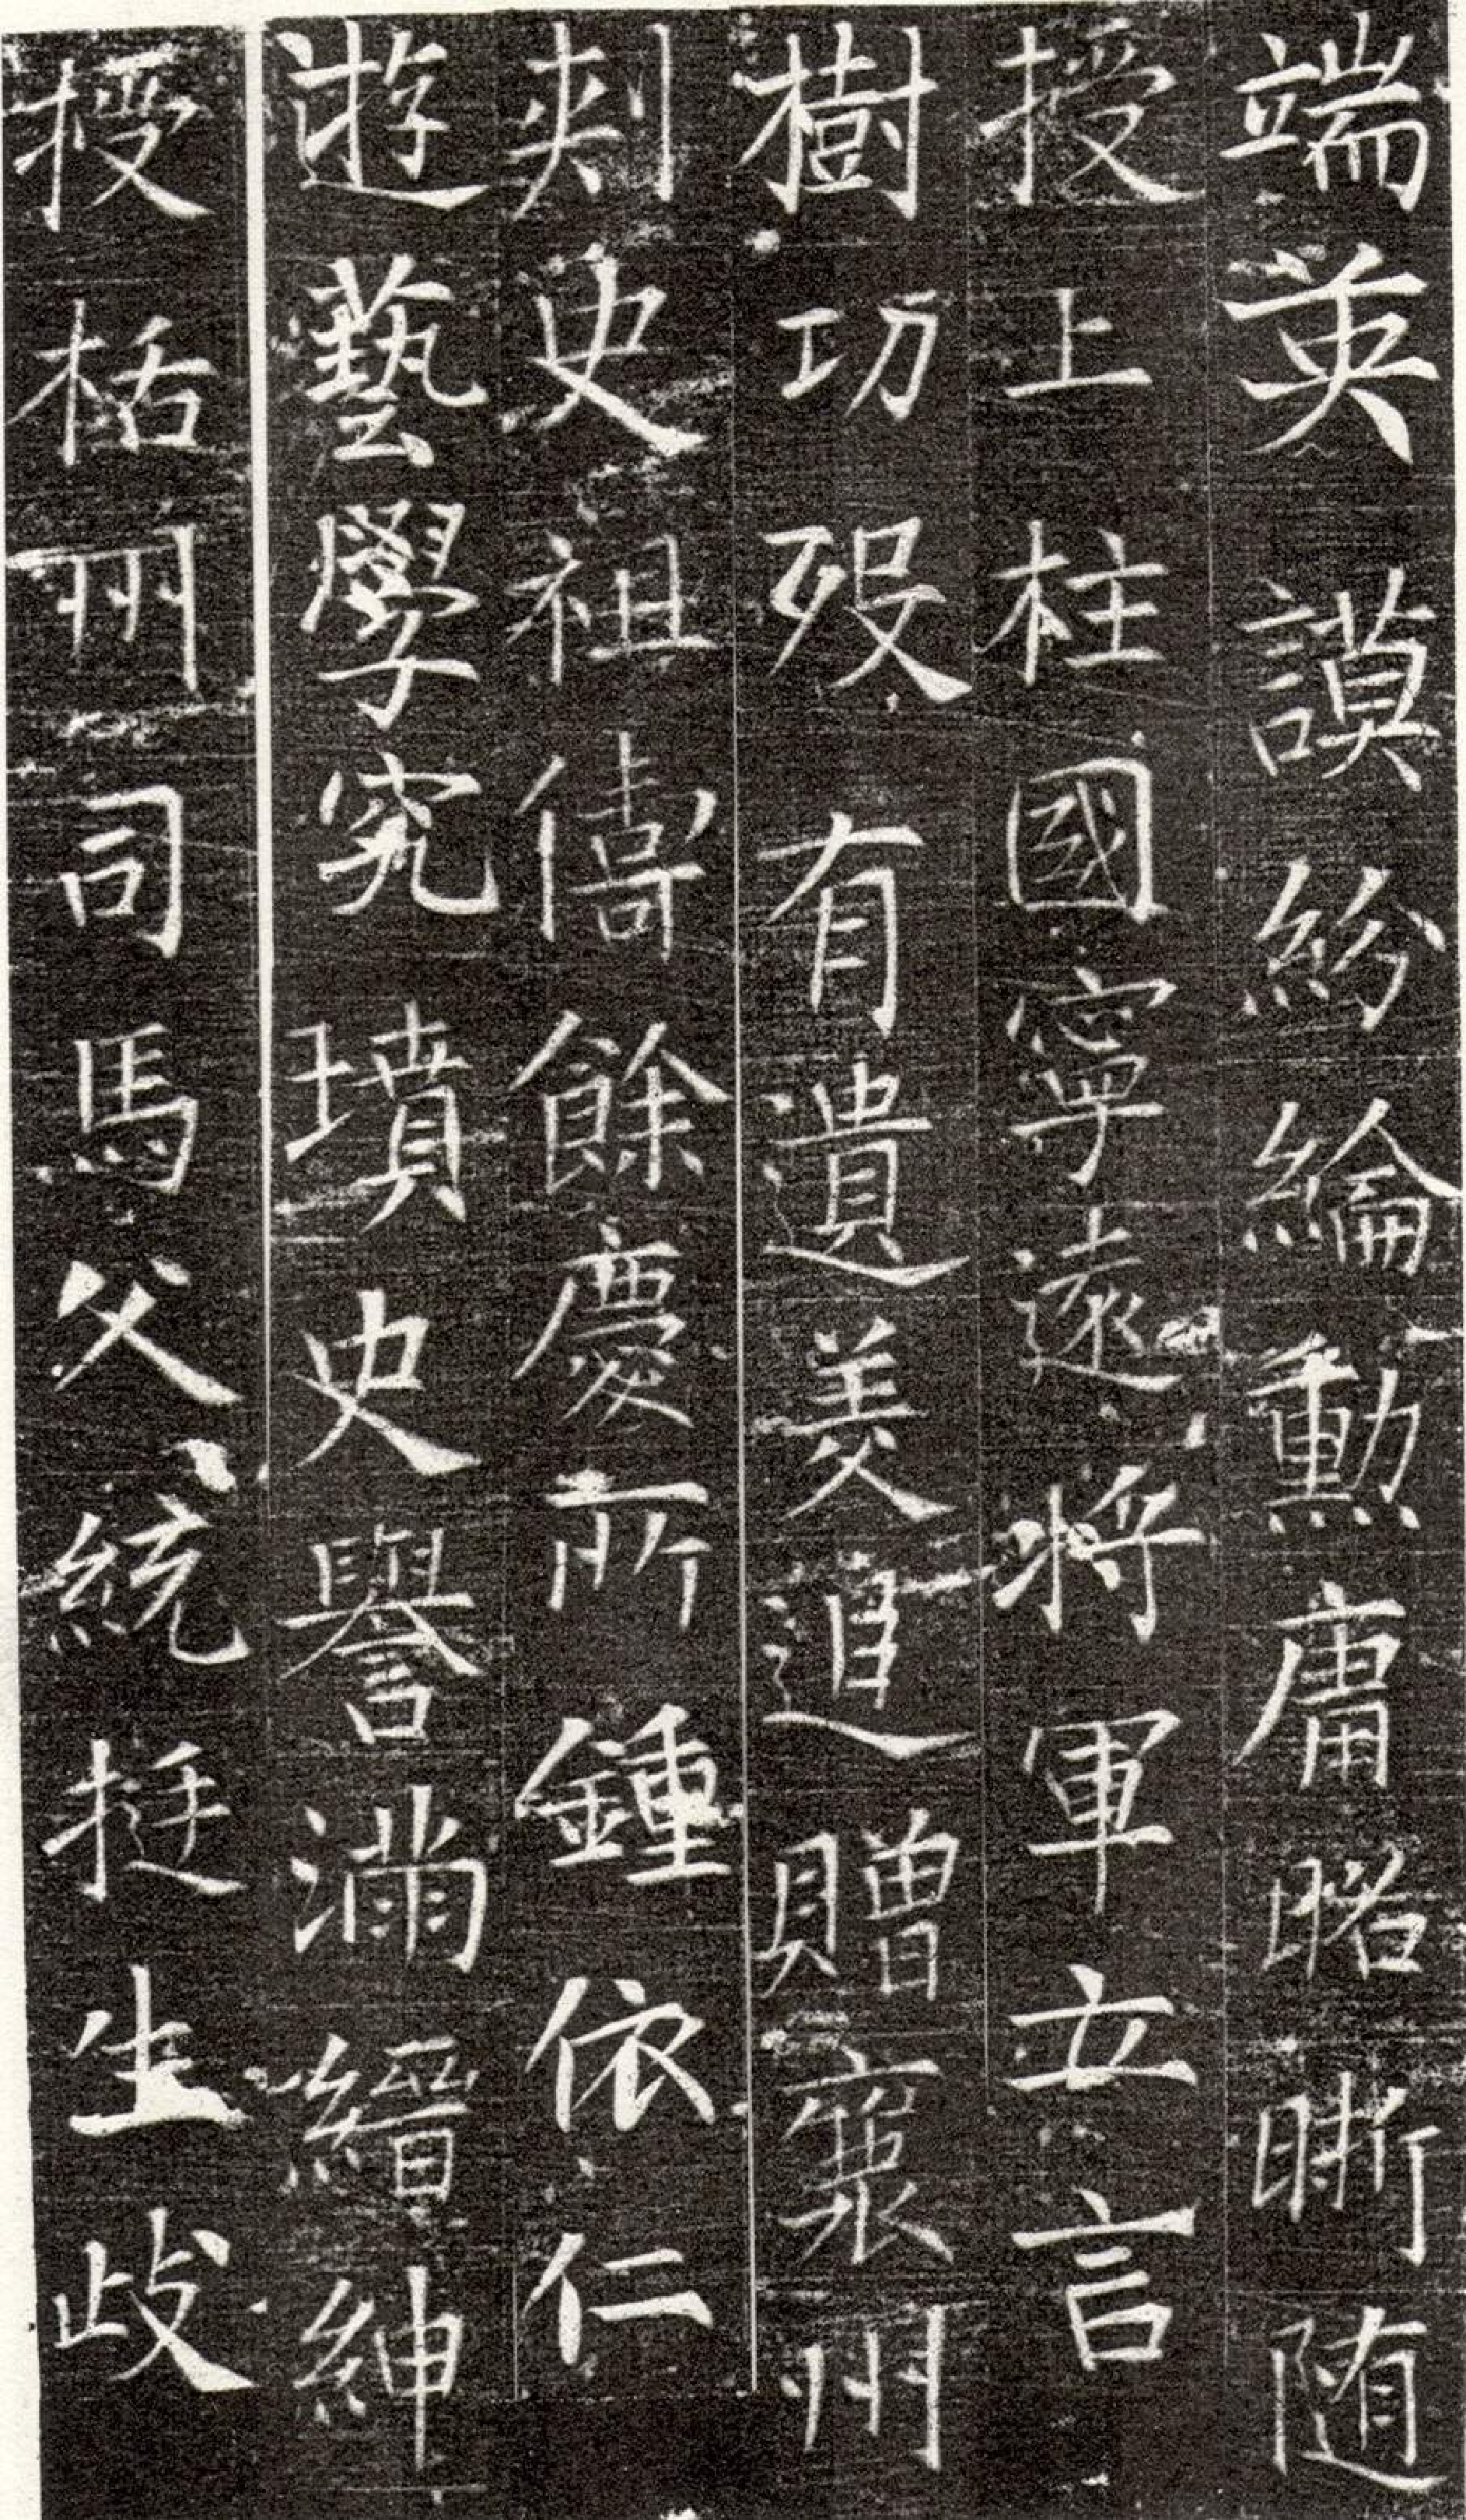 端英謨紛綸勲庸晧晰随
授上柱國寧遠将軍立言
樹功歿有遺美追贈襄州
刺史祖儔餘慶所鍾依仁
遊藝學究墳史譽滿縉紳
授栝州司馬父統挺生歧